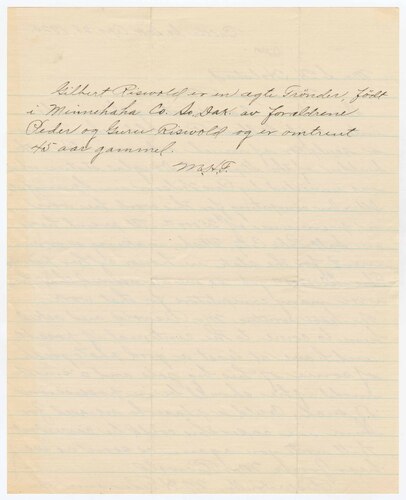 Gilbert Riswold er en ægte Trönder, födt
i Minnehaha Co. So. Dak. av foraldrene
Peder og Guru Riswold og er omtrent
45 aar gammel.